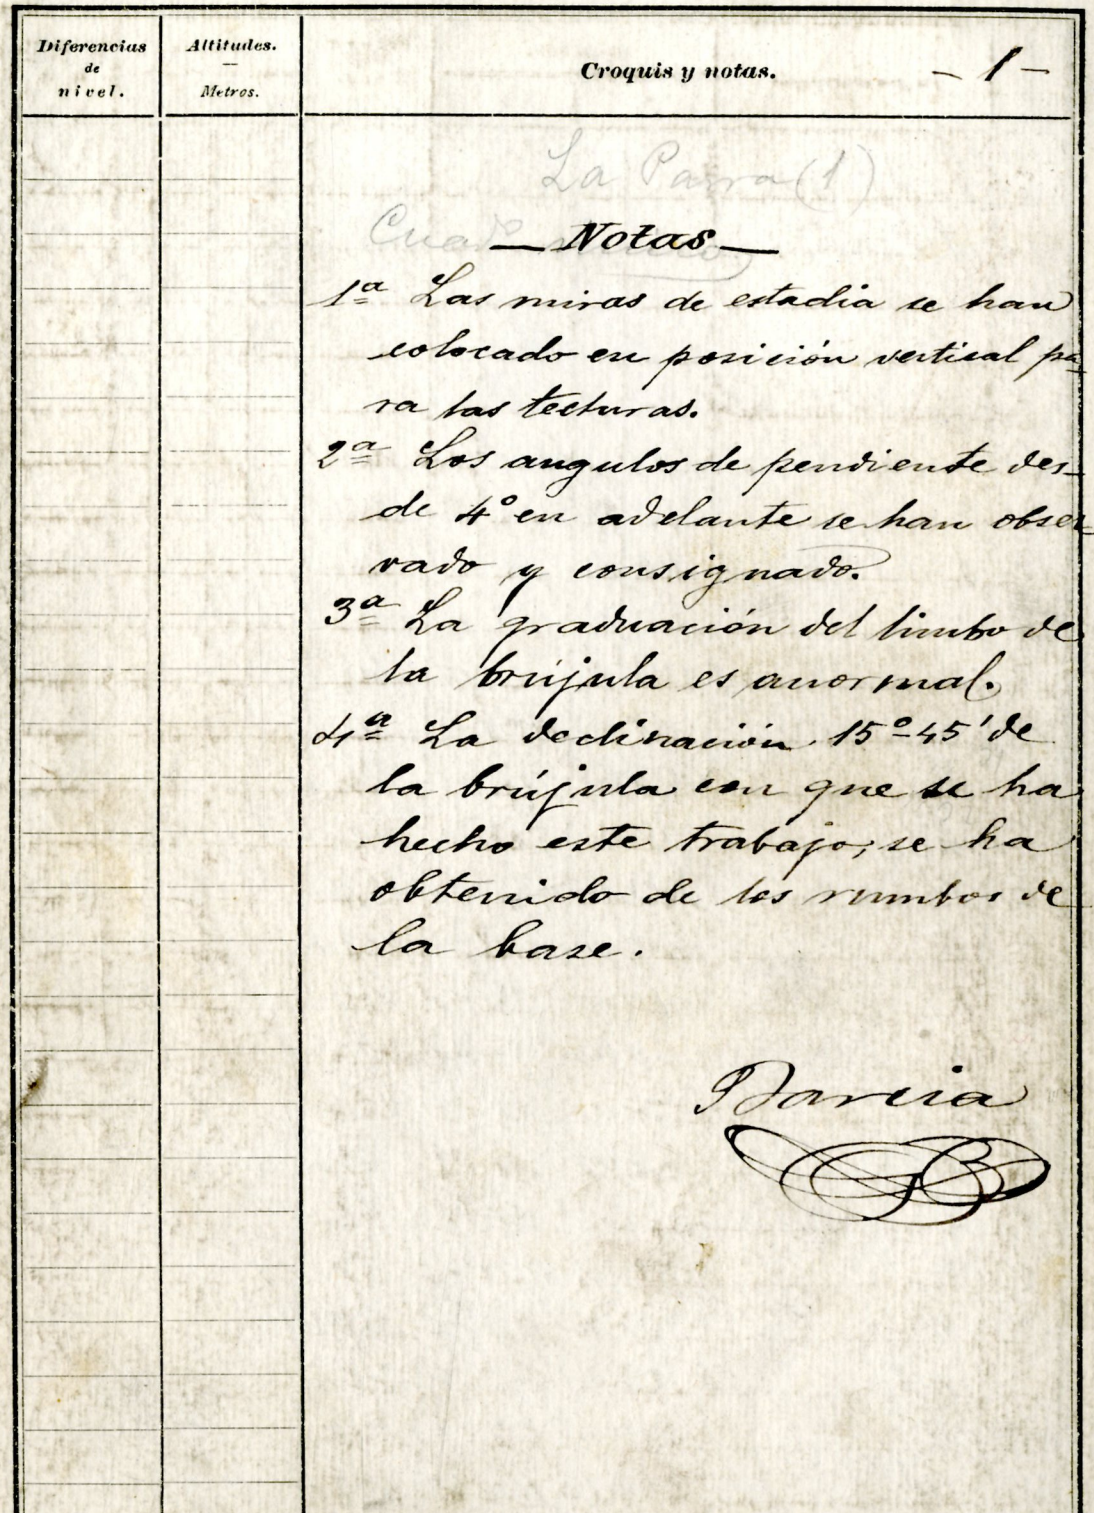 Diferencias
de
nivel.
Altitudes.
Metros.
Croquis y notas.
- 1 -
La Parra (1)
Notas
1ª Las miras de estadia se han
colocado en posición vertical pa-
ra las lecturas.
2ª Los angulos de pendiente des-
de 4º en adelante se han obser-
vado y consignado.
3ª La graduación del limbo de
la brújula es anormal.
4ª La declinación 15º-45' de
la brújula con que se ha
hecho este trabajo, se ha
obtenido de los rumbos de
la base.
Barcia